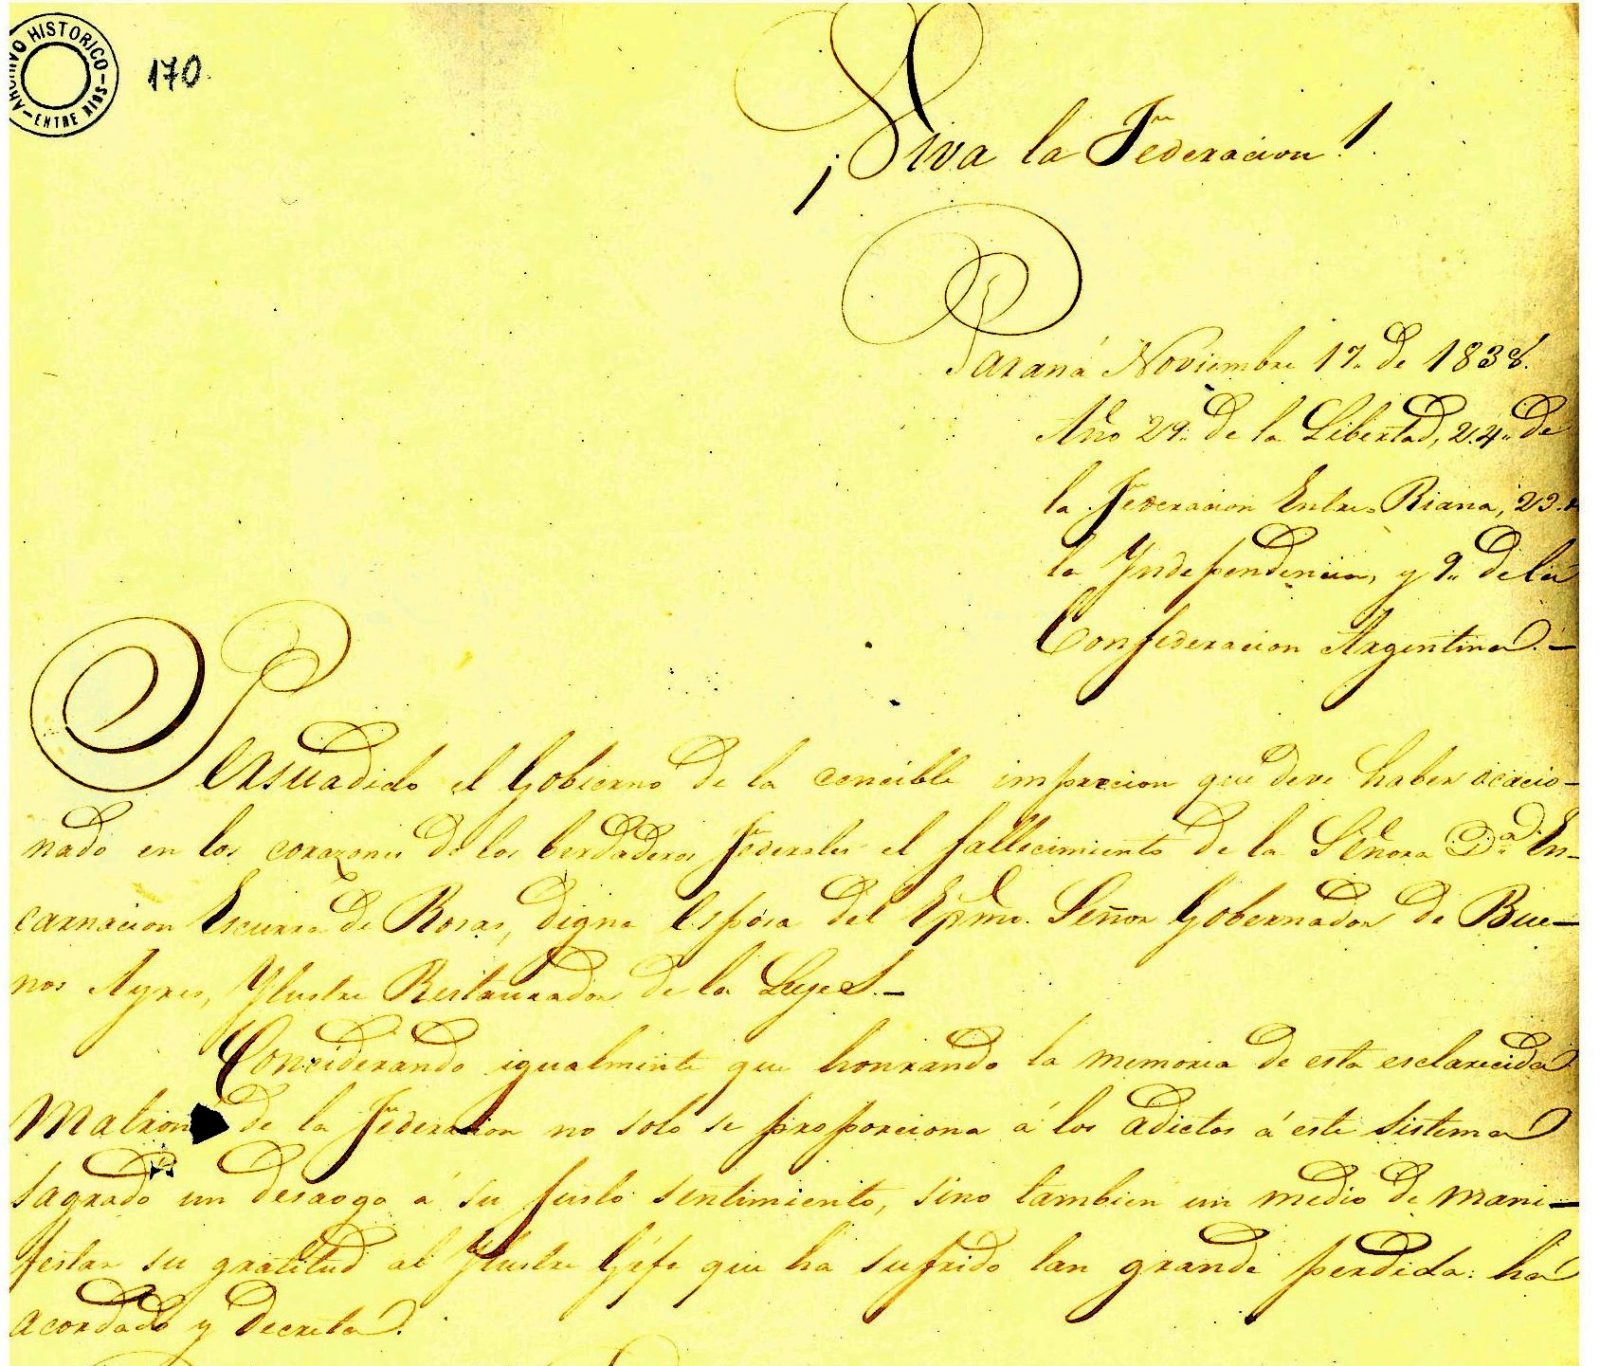 ARCHIVO HISTORICO - ENTRE RIOS -
170
¡Viva la Federacion!
Paraná Noviembre 17. de 1838.
Año 29. de la Libertad, 24. de
la Federacion Entre-Riana, 23.
la Yndependencia, y 9. de la
Confederacion Argentina.-
Persuadido el Gobierno de la cencible imprecion que deve haber ocacio-
nado en los corazones de los berdaderos Federales el fallecimiento de la Señora Da. En-
carnacion Escurra de Rosas, digna Esposa del Exmo. Señor Gobernador de Bue-
nos Ayres, Ylustre Restaurador de la Leyes.-
Conciderando igualmente que honrando la memoria de esta esclarecida
Matrona de la Federacion no solo se proporciona á los adictos á este sistema
sagrado un desaogo á su justo sentimiento, sino tambien un medio de mani-
festar su gratitud al Ylustre Géfe que ha sufrido tan grande perdida: ha
acordado y decreta.